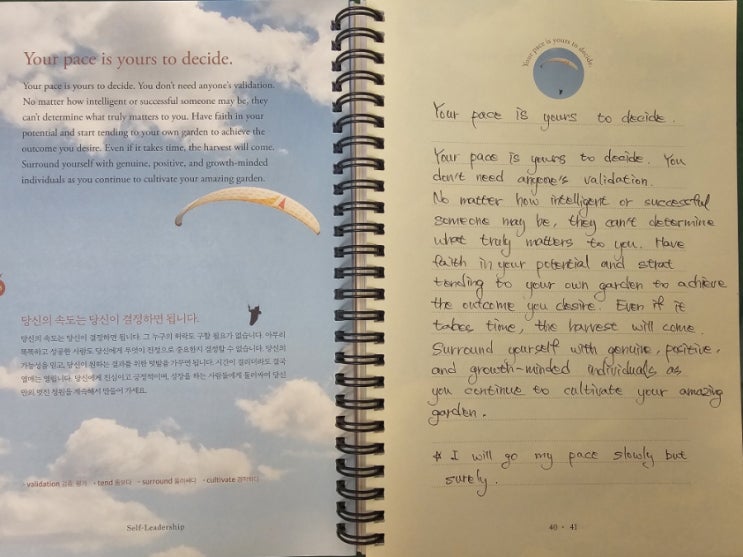 Your pace is yours to decide.
Your pace is yours to decide. You don't need anyone's validation.
No matter how intelligent or successful someone may be, they
can't determine what truly matters to you. Have faith in your
potential and start tending to your own garden to achieve the
outcome you desire. Even if it takes time, the harvest will come.
Surround yourself with genuine, positive, and growth-minded
individuals as you continue to cultivate your amazing garden.
당신의 속도는 당신이 결정하면 됩니다.
당신의 속도는 당신이 결정하면 됩니다. 그 누구의 허락도 구할 필요가 없습니다. 아무리
똑똑하고 성공한 사람도 당신에게 무엇이 진정으로 중요한지 결정할 수 없습니다. 당신의
가능성을 믿고, 당신이 원하는 결과를 위한 텃밭을 가꾸면 됩니다. 시간이 걸리더라도 결국
열매는 열립니다. 당신에게 진심이고 긍정적이며, 성장을 하는 사람들에게 둘러싸여 당신
만의 멋진 정원을 계속해서 만들어 가세요.
• validation 검증, 평가 • tend 돌보다 • surround 둘러싸다 • cultivate 경작하다
Self-Leadership
Your pace is yours to decide.
Your pace is yours to decide.
Your pace is yours to decide. You
don't need anyone's validation.
No matter how intelligent or successful
someone may be, they can't determine
what truly matters to you. Have
faith in your potential and strat
tending to your own garden to achieve
the outcome you desire. Even if it
takes time, the harvest will come.
Surround yourself with genuine, positive,
and growth-minded individuals as
you continue to cultivate your amazing
garden.
☆ I will go my pace slowly but
surely.
40 • 41